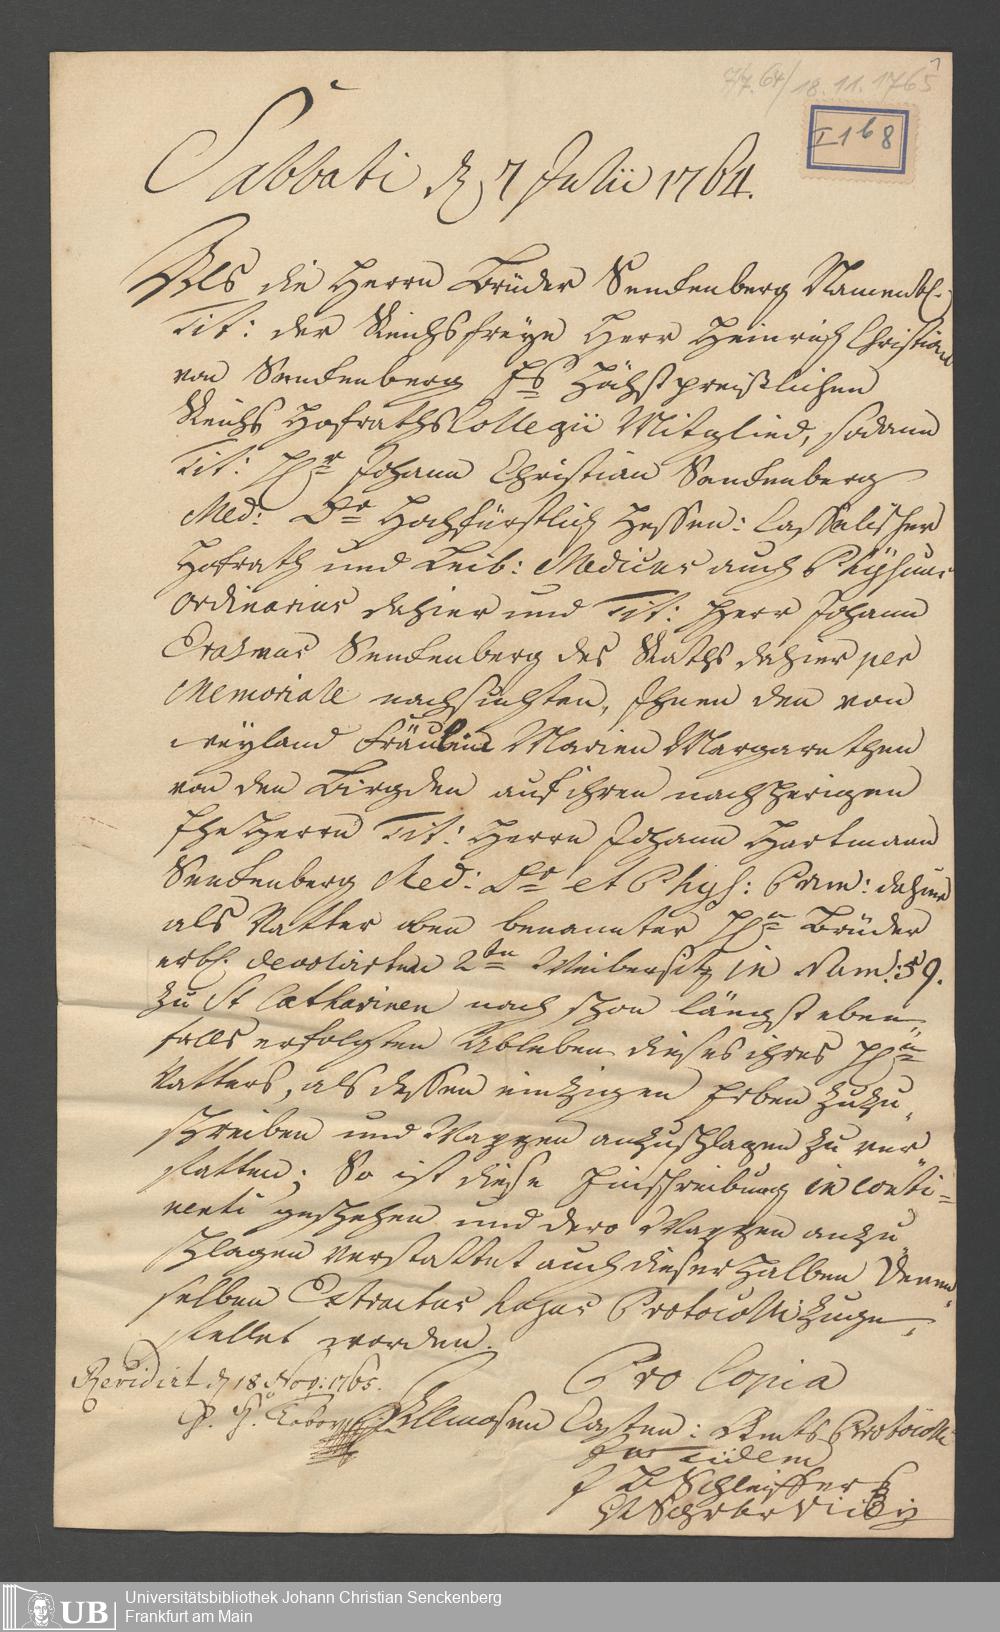 7/7.64/18.11.1765
1
I 168
Sabbati d 7 Julii 1764.
Als die Herrn Brüder Senckenberg Namentl.
Tit: der Reichsfreye Herr Heinrich Christian
von Senckenberg Es Höchstpreißlichen
Reichs HofrathsCollegii Mitglied, sodann
Tit: Hr Johann Christian Senckenberg
Med: Dr Hochfürstlich Hessen: Casselischer
Hofrath und Leib: Medicus auch Physicus
Ordinarius dahier und Tit: Herr Johann
Erasmus Senckenberg des Raths dahier per
Memoriale nachsuchten, Ihnen den von
weyland Fräulein Marien Margarethen
von den Birgden auf ihren nachherigen
EheHerrn Tit: Herrn Johann Hartmann
Senckenberg Med: Dr et Phys: Prim: dahier
als Vatter oben benannter Hn Brüder
erbl. devolvirten 2ten Weibersitz in Num: 59.
zu St Catharinen nach schon längst eben
falls erfolgten Ableben dieses ihres Hn
Vatters, als dessen eintzigen Erben zuzu
schreiben und Wappen anzuschlagen zu ver
statten; So ist diese Einschreibung in conti-
nenti geschehen und dero Wappen anzu
schlagen verstattet auch dieserhalben Denen
selben Extractus hujus Protocolli zuge
stellet worden.
Revidirt d 18 Nov: 1765.
Pro Copia
Allmosen Casten: Amts Protocolli
in fidem
Schleiffer